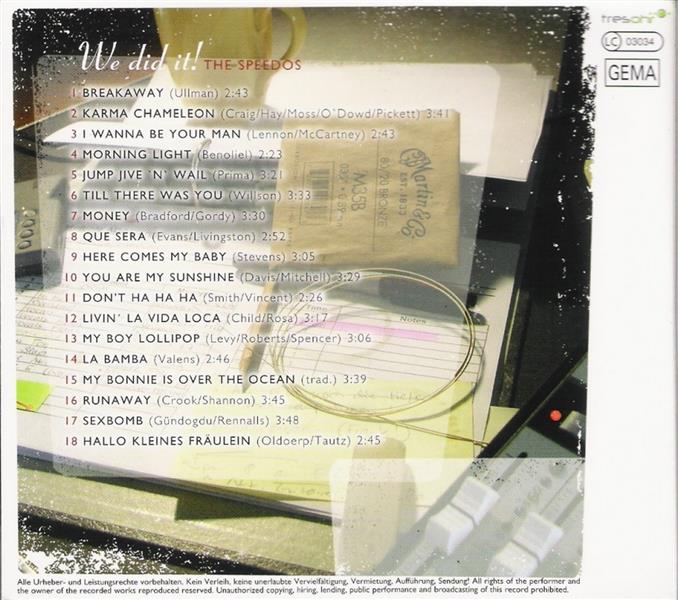 tresohr
LC 03034
GEMA
We did it! THE SPEEDOS
1 BREAKAWAY (Ullman) 2:43
2 KARMA CHAMELEON (Craig/Hay/Moss/O`Dowd/Pickett) 3:41
3 I WANNA BE YOUR MAN (Lennon/McCartney) 2:43
4 MORNING LIGHT (Benoliel) 2:23
5 JUMP JIVE ´N´ WAIL (Prima) 3:21
6 TILL THERE WAS YOU (Willson) 3:33
7 MONEY (Bradford/Gordy) 3:30
8 QUE SERA (Evans/Livingston) 2:52
9 HERE COMES MY BABY (Stevens) 3:05
10 YOU ARE MY SUNSHINE (Davis/Mitchell) 3:29
11 DON'T HA HA HA (Smith/Vincent) 2:26
12 LIVIN´ LA VIDA LOCA (Child/Rosa) 3:17
13 MY BOY LOLLIPOP (Levy/Roberts/Spencer) 3:06
14 LA BAMBA (Valens) 2:46
15 MY BONNIE IS OVER THE OCEAN (trad.) 3:39
16 RUNAWAY (Crook/Shannon) 3:45
17 SEXBOMB (Gündogdu/Rennalls) 3:48
18 HALLO KLEINES FRÄULEIN (Oldoerp/Tautz) 2:45
Martin & Co
EST. 1833
80/20 BRONZE
M35B
Notes
Alle Urheber- und Leistungsrechte vorbehalten. Kein Verleih, keine unerlaubte Vervielfältigung, Vermietung, Aufführung, Sendung! All rights of the performer and
the owner of the recorded works reproduced reserved. Unauthorized copying, hiring, lending, public performance and broadcasting of this record prohibited.